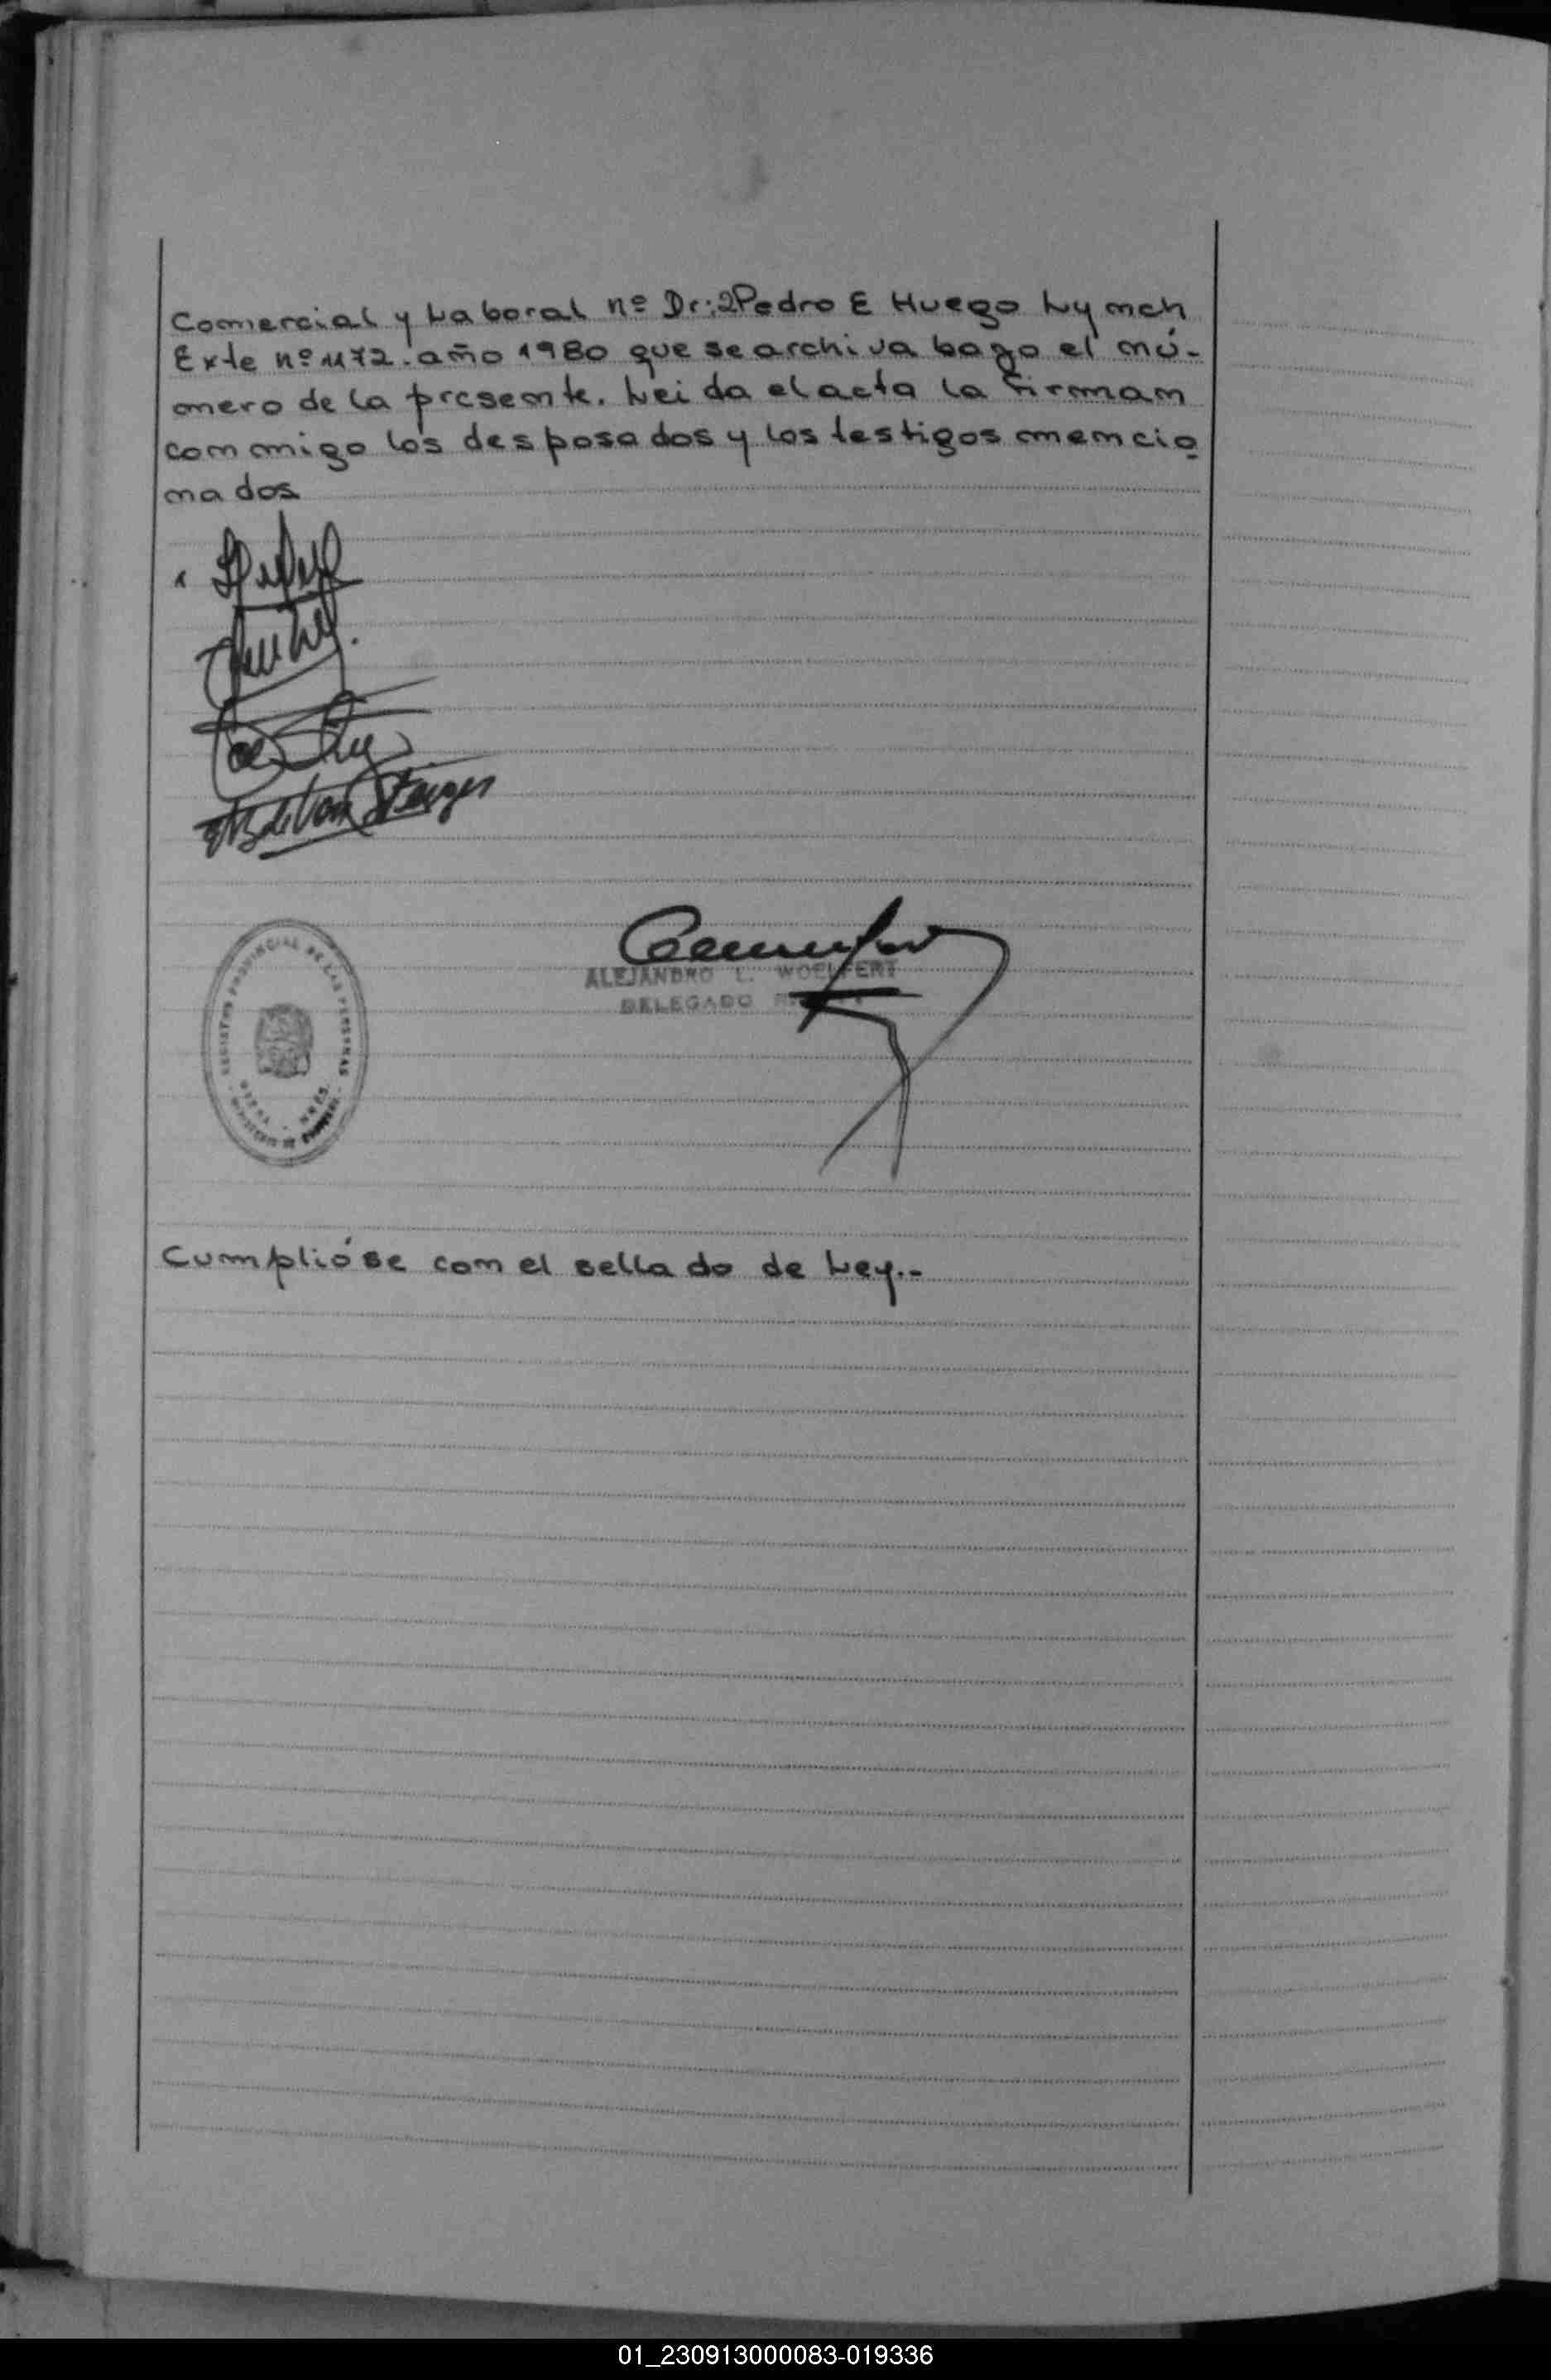 Comercial y Laboral nº Dr:2Pedro E Huego Lynch
Exte nº 1172. año 1980 que se archiva bago el nú-
nero de la presente. Leida el acta la firman
conmigo los desposados y los testigos mencio
nados
ALEJANDRO L. WOELFERT
DELEGADO
REGISTRO PROVINCIAL DE LAS PERSONAS
Cumplióse con el sellado de Ley.-
01_230913000083-019336